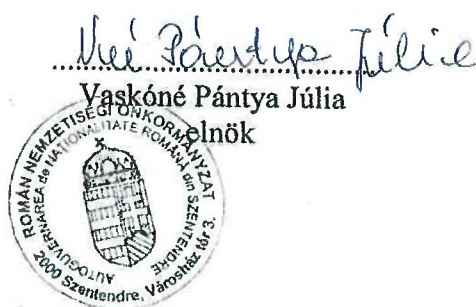 Vné Pántya Júlia
Vaskóné Pántya Júlia
elnök
ROMÁN NEMZETISÉGI ÖNKORMÁNYZAT
AUTOGUVERNAREA de NAȚIONALITATE ROMÂNĂ din SZENTENDRE
2000 Szentendre, Városház tér 3.